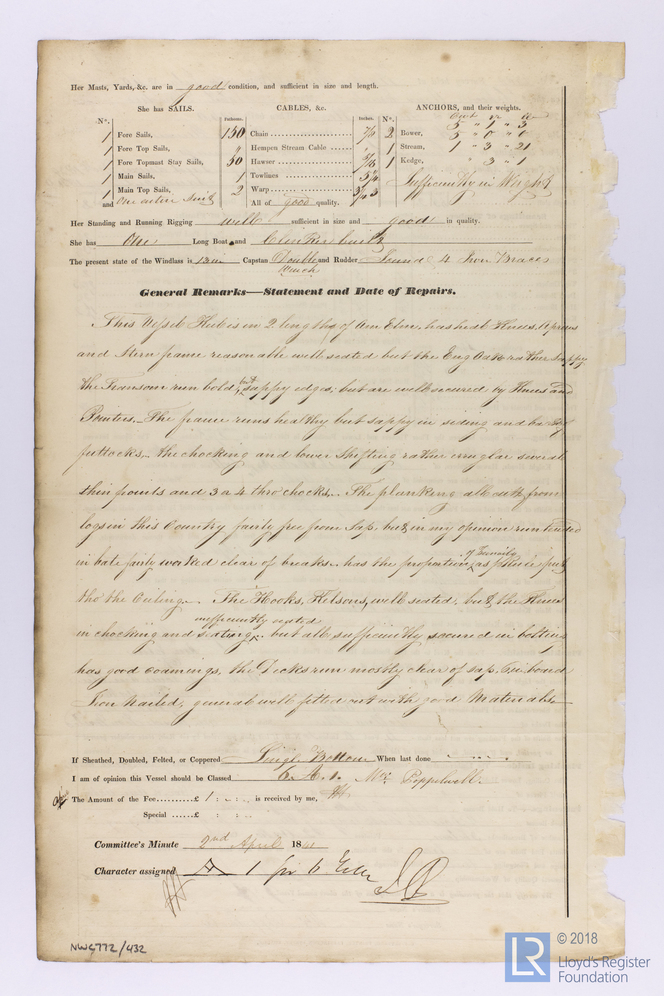 Her Masts, Yards, &c. are in good condition, and sufficient in size and length.
She has SAILS. CABLES, &c. ANCHORS, and their weights.
N°. Fathoms. Inches. N°.
1 Fore Sails, 150 Chain 7/8 2 Bower, 5 " 1 " 3
5 " 0 " 0
1 Fore Top Sails, Hempen Stream Cable 1 Stream, 1 " 3 " 21
1 Fore Topmast Stay Sails, 50 Hawser 5/8 1 Kedge, " 3 " 1
1 Main Sails, Towlines
1 Main Top Sails, 2 Warp Sufficiently in Weight
and One entire Suit All of good quality.
Her Standing and Running Rigging well sufficient in size and good in quality.
She has One Long Boat and Clinker built
The present state of the Windlass is Capstan Double Winch and Rudder Sound 4 Iron Braces
General Remarks—Statement and Date of Repairs.
This Vessel Keel is in 2 lengths of Am Elm, has heal Knees, Aprons
and Stern frame reasonable well seated but the Eng Oak rather sappy
the Transom run bold, but sappy edges, but are well secured by Knees and
Pointers. The frame runs healthy but sappy in siding and
futtocks, the chocking and lower shifting rather irregular several
thin points and 3 or 4 thro chocks. The planking all oak from
logs in this Country fairly free from Sap, but in my opinion run
in but fairly worked clear of breaks. has the proportion of Treenails as
thro the Ceiling. The Hooks, Kelsons, well seated, but the Knees
in chocking and inefficiently seated but all sufficiently secured in bolting
has good coamings, the Decks run mostly clear of sap.
Iron Nailed; general well fitted out with good Materials
If Sheathed, Doubled, Felted, or Coppered Single Bottom When last done
I am of opinion this Vessel should be Classed 6 A. 1. Popplewell.
The Amount of the Fee £ 1 : - : - is received by me,
Special £ : :
Committee's Minute 2nd April 18
Character assigned A 1 for 6
NWC772/432
LR
© 2018
Lloyd's Register
Foundation